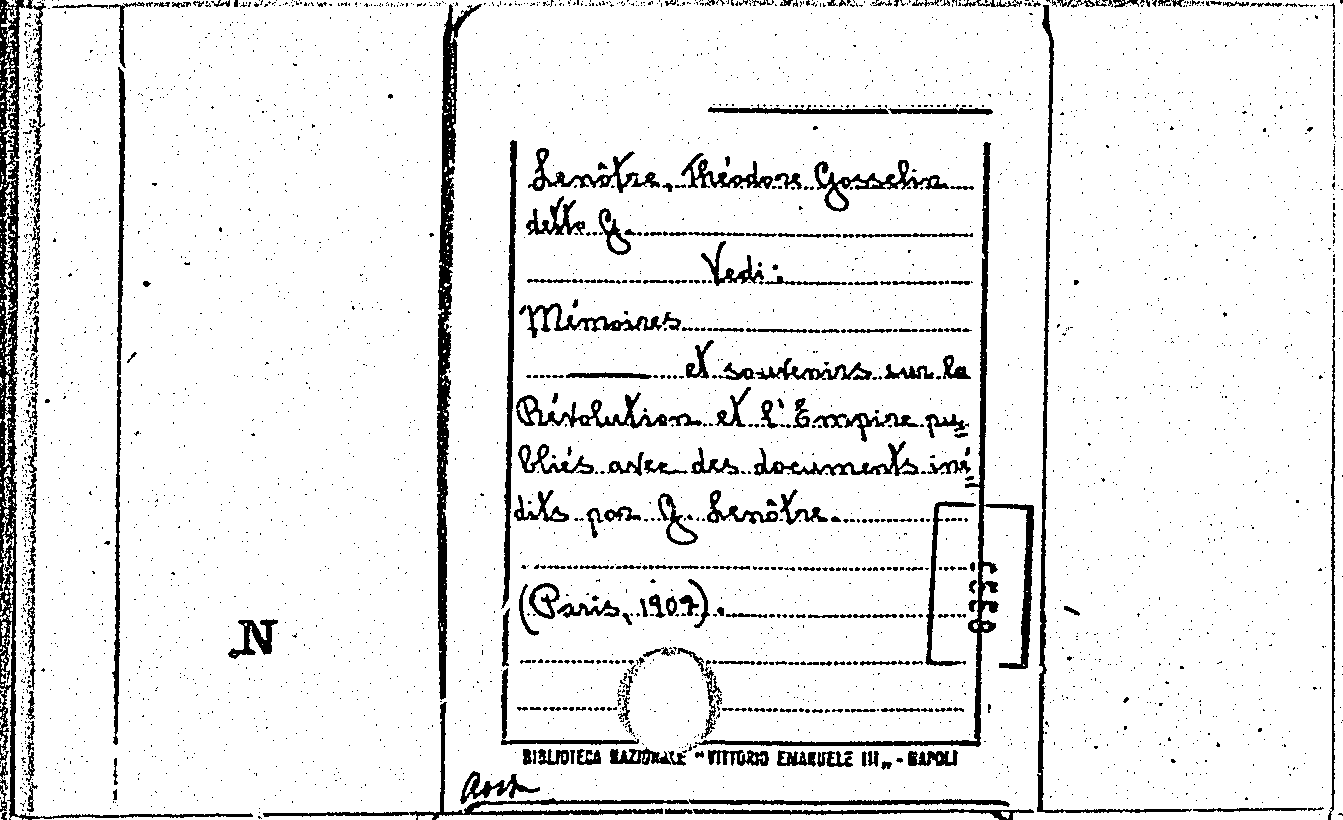 Lenôtre, Théodore Gosselin
detto G.
Vedi:
Mémoires
——— et souvenirs sur la
Révolution et l'Empire pu=
bliés avec des documents iné=
dits par G. Lenôtre.
(Paris, 1907).
N
BIBLIOTECA NAZIONALE "VITTORIO EMANUELE III„ - NAPOLI